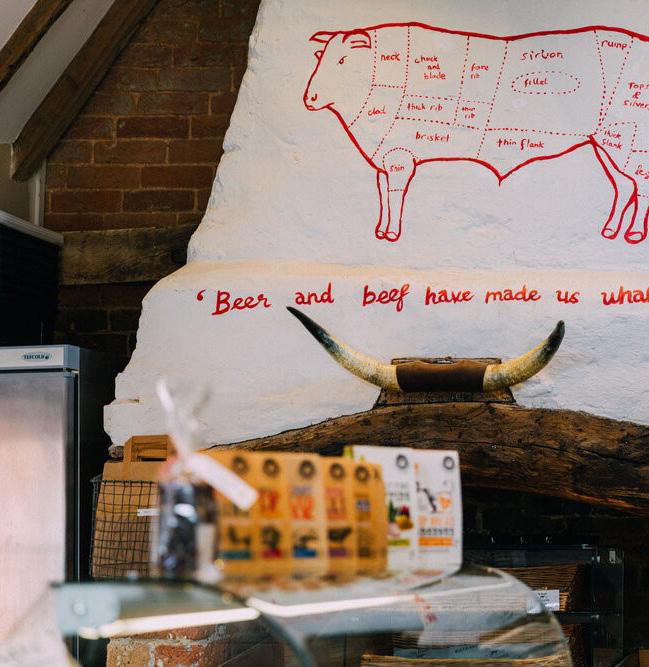 neck
chuck
and
blade
fore
rib
sirloin
fillet
rump
Tops
&
silver
clod
thick rib
thin
rib
brisket
thin flank
thick
flank
leg
shin
‘Beer and beef have made us what
TEFCOLD